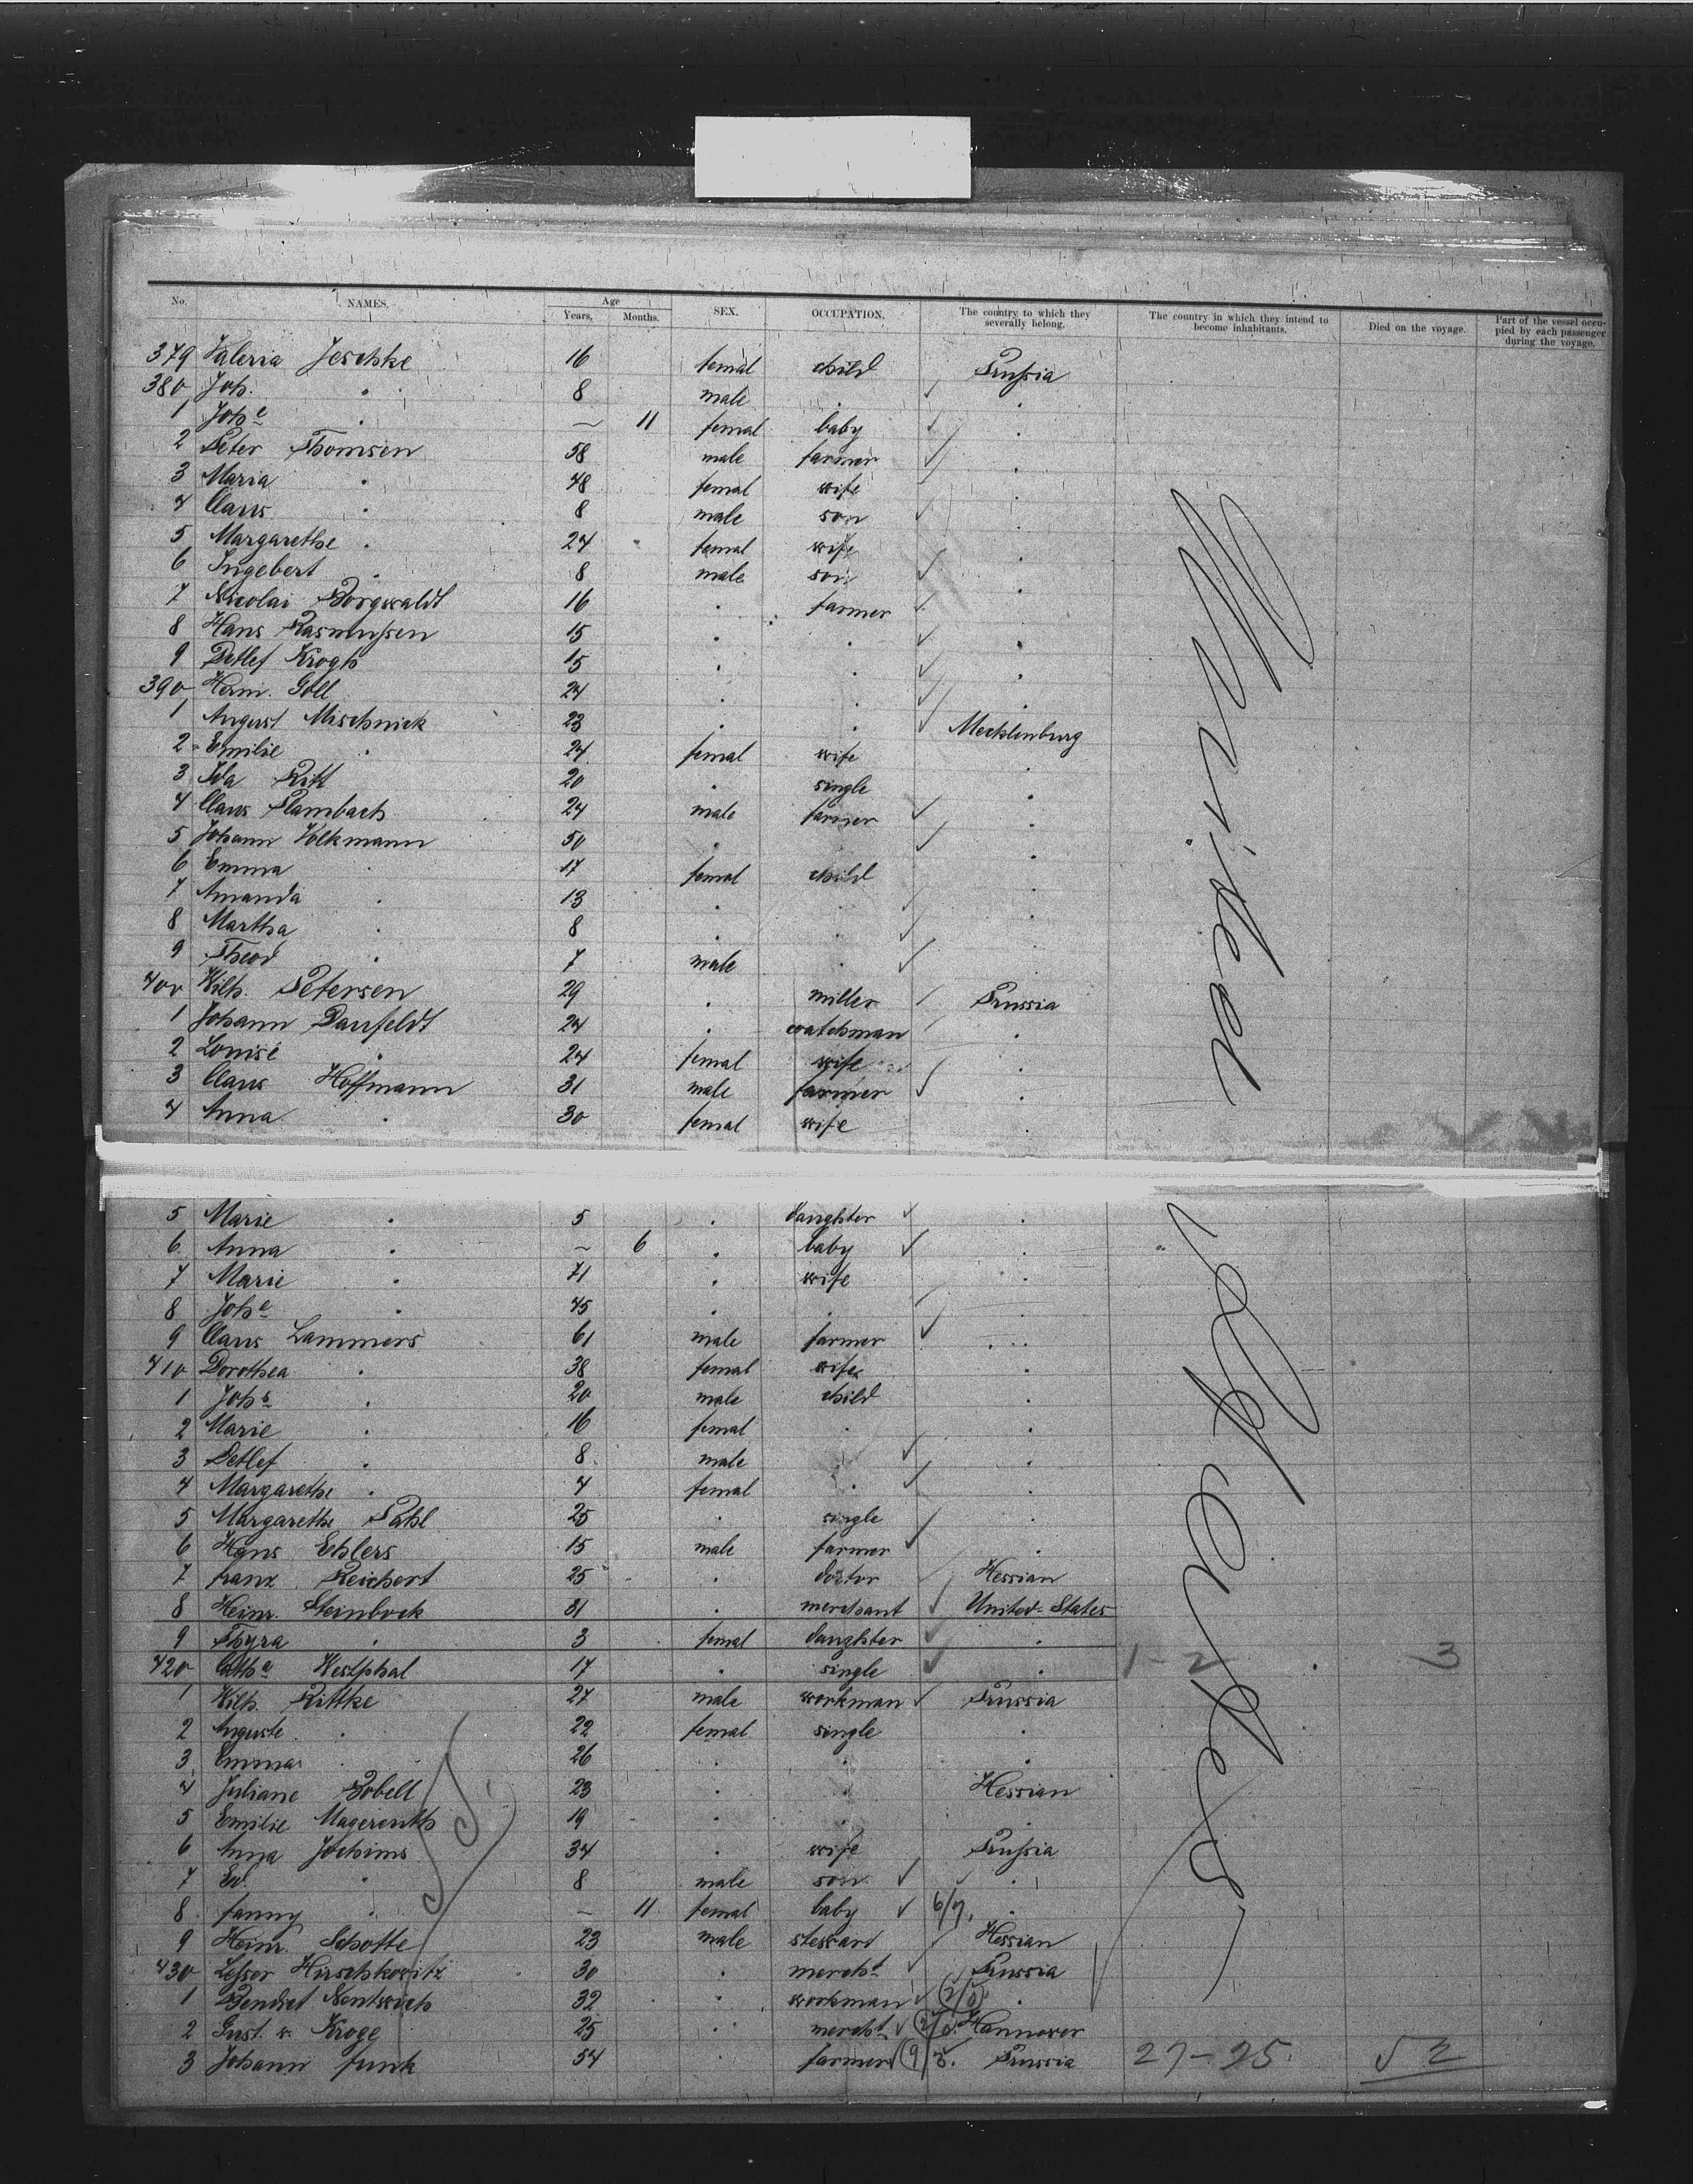 No. NAMES. Age Years. Months. SEX. OCCUPATION. The country to which they severally belong. The country in which they intend to become inhabitants. Died on the voyage. Part of the vessel occupied by each passenger during the voyage.
379 Valeria Jeschke 16 femal child Prussia
380 Joh. " 8 male " "
1 Johe " — 11 femal baby "
2 Peter Thomsen 58 male farmer "
3 Maria " 48 femal wife "
4 Claus " 8 male son "
5 Margarethe " 24 femal wife "
6 Ingebert " 8 male son "
7 Nicolai Borgwaldt 16 " farmer "
8 Hans Rasmussen 15 " " "
9 Detlef Krogh 15 " " "
390 Herm. Goll 24 " " "
1 August Mischnick 23 " " Mecklenburg
2 Emilie " 24 femal wife "
3 Ida Ritt 20 " single "
4 Claus Plambach 24 male farmer "
5 Johann Volkmann 50 " " "
6 Emma " 17 femal child "
7 Amanda " 13 " " "
8 Martha " 8 " " "
9 Theod " 7 male " "
400 Wilh. Petersen 29 " miller Prussia
1 Johann Danfeldt 24 " watchman "
2 Louise " 24 femal wife "
3 Claus Hoffmann 31 male farmer "
4 Anna " 30 femal wife "
5 Marie " 5 " daughter "
6 Anna " — 6 " baby "
7 Marie " 71 " wife "
8 Johe " 45 " " "
9 Claus Lammers 61 male farmer "
410 Dorothea " 38 femal wife "
1 Johs " 20 male child "
2 Marie " 16 femal " "
3 Detlef " 8 male "
4 Margarethe " 4 femal " "
5 Margarethe Pahl 25 " single "
6 Hans Ehlers 15 male farmer "
7 Franz Reichert 25 " doctor Hessian
8 Heinr. Steinbock 31 " merchant United-States
9 Thyra " 3 femal daughter "
420 Catha Westphal 17 " single " 1-2 3
1 Wilh. Rittke 27 male workman Prussia
2 Auguste " 22 femal single "
3 Emma " 26 " " "
4 Juliane Bobell 23 " " Hessian
5 Emilie Magerenth 19 " " "
6 Anna Jochims 34 " wife Prussia
7 Ed. " 8 male son "
8 Fanny " — 11 femal baby 6/7. "
9 Heinr. Schotte 23 male stewart Hessian
430 Lesser Hirschkowitz 30 " mercht Prussia
1 Bendset Nentwich 32 " workman "
2 Gust. v. Kroge 25 " mercht Hannover
3 Johann Funk 54 " farmer Prussia 27-25 √ 2
United States